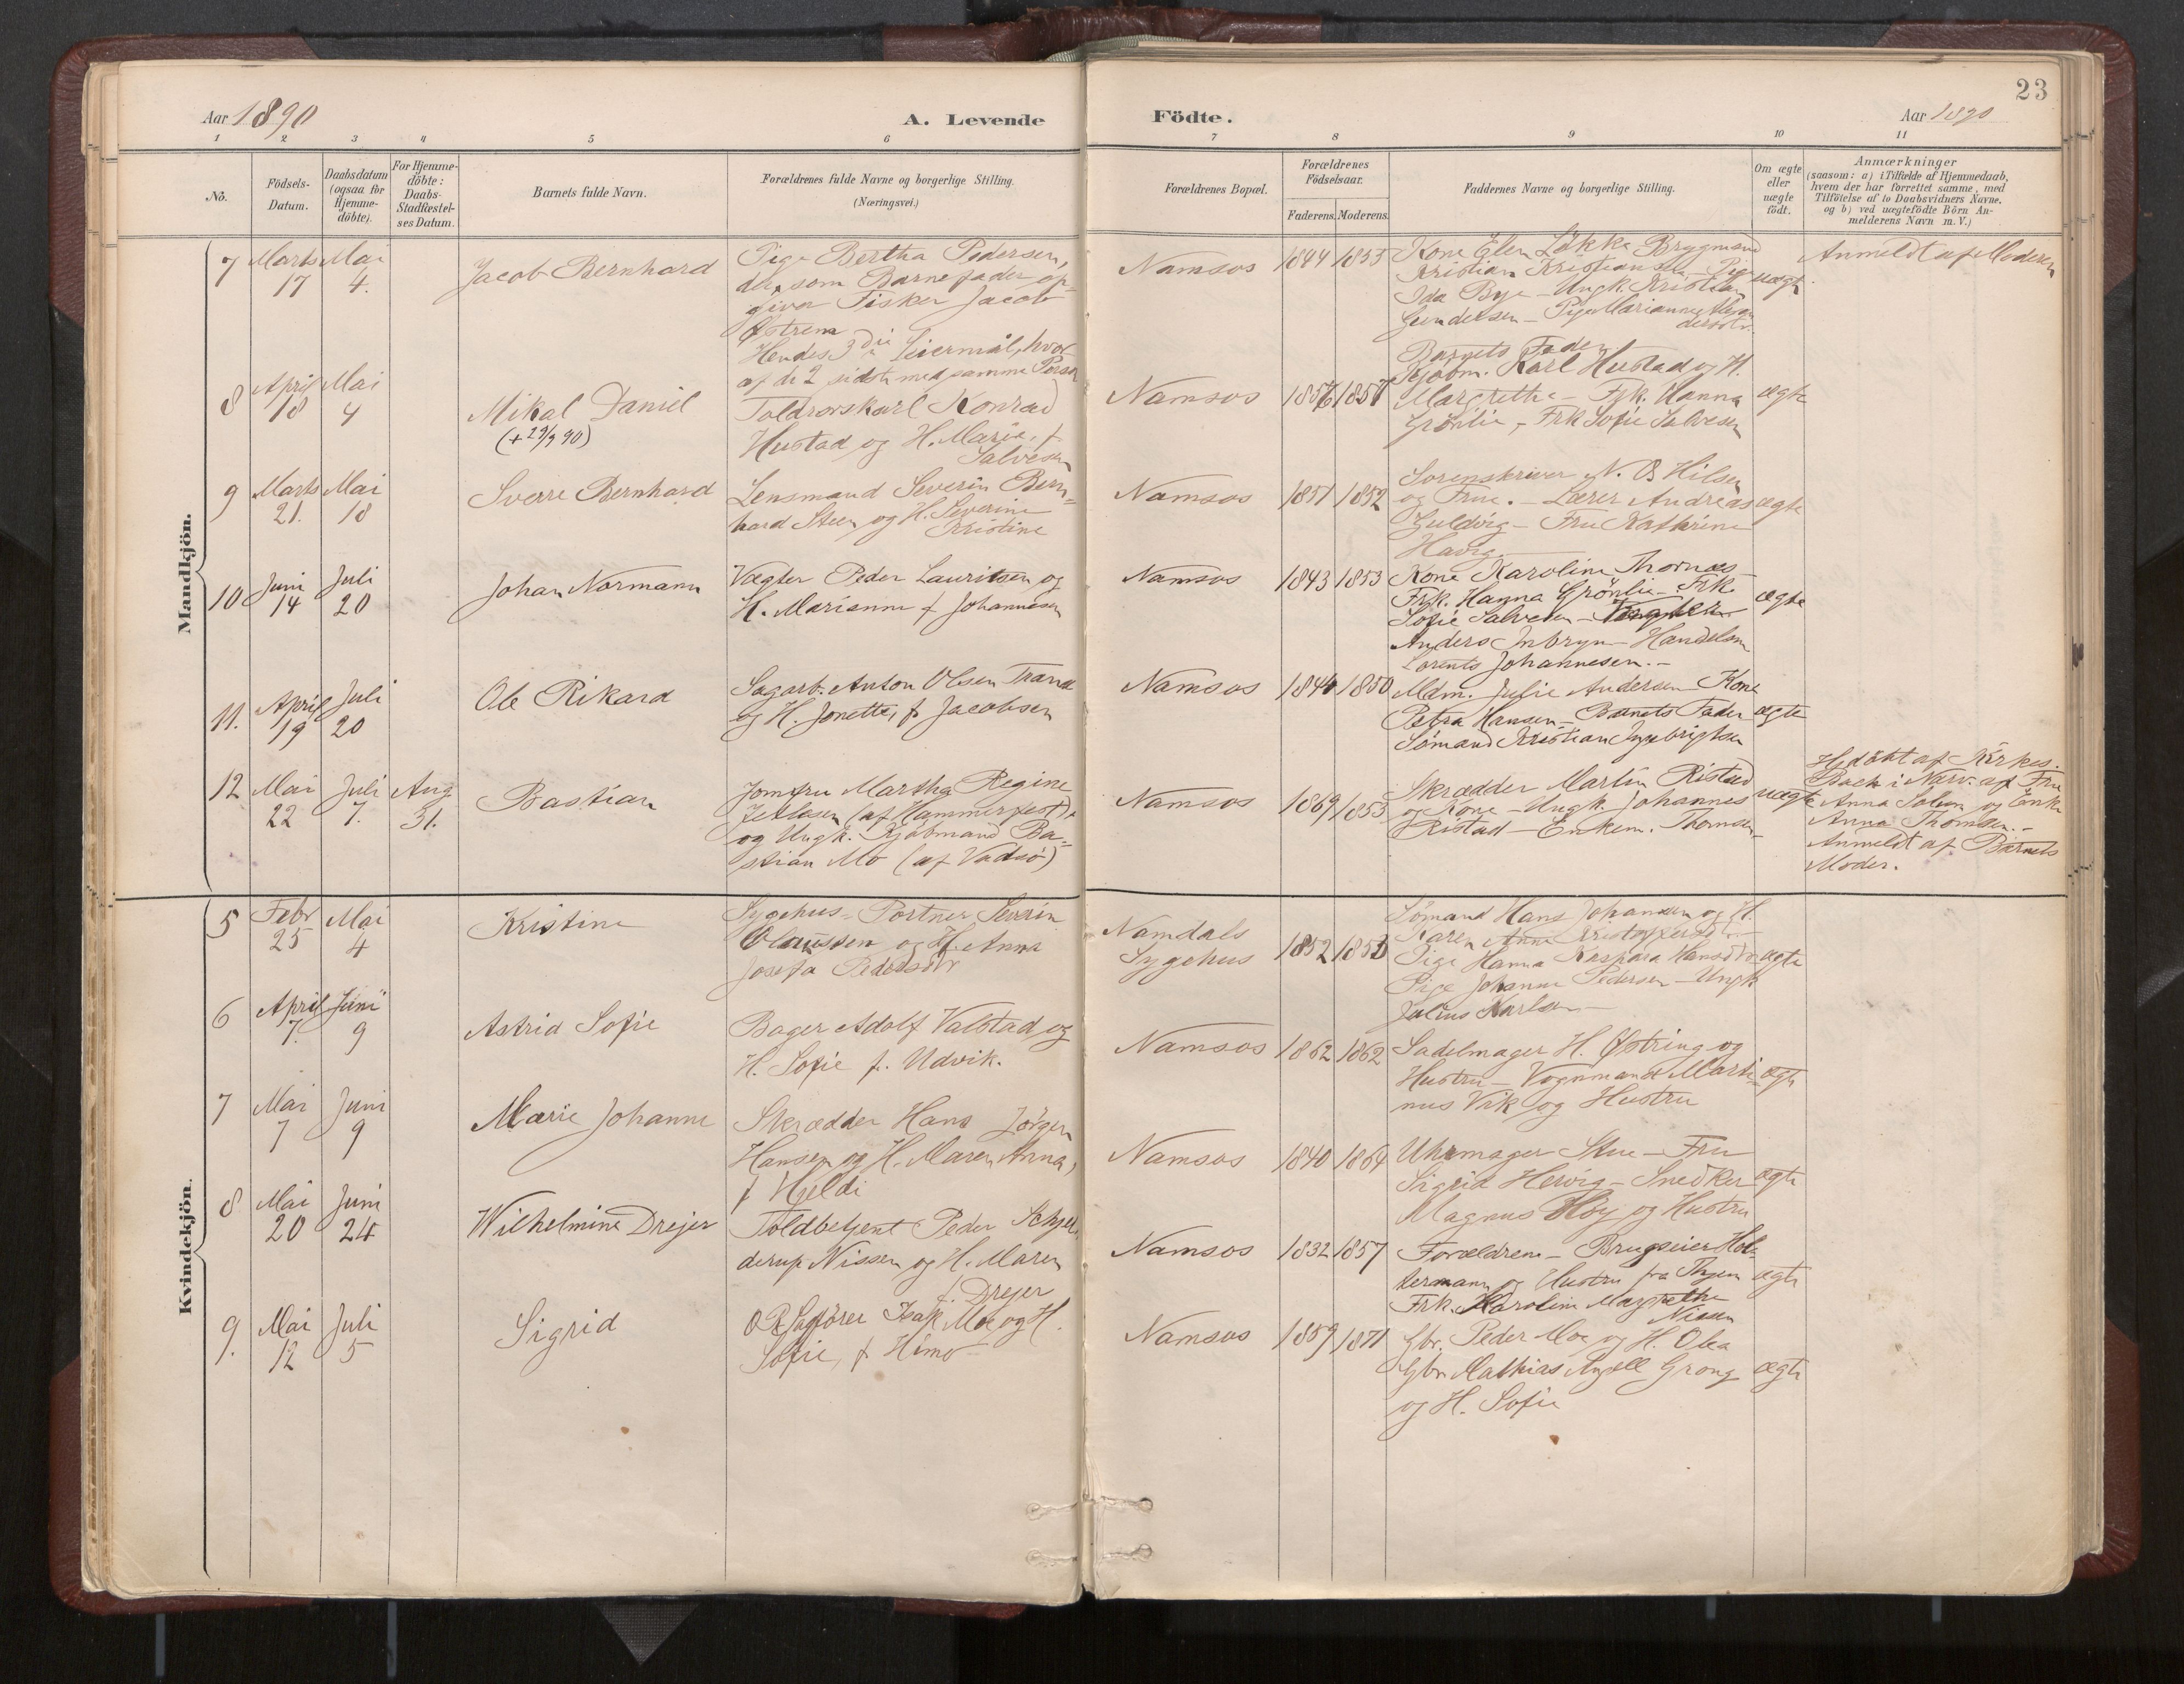 23
Aar 1890
A. Levende
Födte.
Aar 1890
1 2 3 4 5 6 7 8 9 10 11
No.
Födsels-
Datum.
Daabsdatum
(ogsaa for
Hjemme-
döbte).
For Hjemme-
döbte:
Daabs-
Stadfæstel-
ses Datum.
Barnets fulde Navn.
Forældrenes fulde Navne og borgerlige Stilling.
(Næringsvei.)
Forældrenes Bopæl.
Forældrenes
Födselsaar.
Faderens. Moderens.
Faddernes Navne og borgerlige Stilling.
Om ægte
eller
uægte
födt.
Anmærkninger
(saasom: a) i Tilfælde af Hjemmedaab,
hvem der har forrettet samme, med
Tilföielse af to Daabsvidners Navne,
og b) ved uægtefödte Börn An-
melderens Navn m. V.)
Mandkjön.
7 Marts 17 Mai 4. Jacob Bernhard
Pige Bertha Pedersen,
der som Barnefader op-
giver Fisker Jacob
Østrem
Hendes 3die Leiermål, hvor-
af de 2 sidste med samme Person
Namsos 1844 1853
Kone Elen Løkke Brygmand
Kristian Kristiansen - Pige
Ida Bye - Ungk. Kristian
Gundersen - Pige Marianne
Barnets Fader
uægte
Anmeldt af Moderen
8 April 18 Mai 4 Mikal Daniel
(+ 29/9 90)
Toldrorskarl Konrad
Hustad og H. Marie, f.
Salvesen
Namsos 1856 1857
Kjøbm. Karl Hustad og H.
Margrethe - Frk. Hanna
Grønlie - Frk Sofie Salvesen
ægte
9 Marts 21. Mai 18 Sverre Bernhard
Lensmand Severin Bern-
hard Steen og H. Severine
Kristine
Namsos 1851 1852
Sorenskriver N. B Hilsen
og Frue. - Lærer Andreas
Guldvig - Fru Kathrine
Havig
ægte
10 Juni 14 Juli 20 Johan Normann
Vægter Peder Lauritsen og
H. Marianne f. Johannesen
Namsos 1843 1853
Kone Karoline Thornæs
Frk. Hanna Grønlie - Frk.
Sofie Salvesen -
Anders Inbryn - Handelsm
Lorents Johannesen. -
ægte
11. April 19 Juli 20 Ole Rikard
Sagarb. Anton Olsen Tranå
og H. Jonette, f. Jacobsen
Namsos 1844 1850
Mdm. Julie Andersen - Kone
Petra Hansen - Barnets Fader
Sømand Kristian Ingebrigtsen
ægte
12 Mai 22 Juli 7. Aug 31. Bastian
Jomfru Martha Regine
Zetlasen (af Hammerfest)
og Ungk. Kjøbmand Ba-
stian Mo (af Vadsø)
Namsos 1869 1853
Skrædder Martin Ristad
og Kone - Ungk. Johannes
Ristad - Enkem. Thomsen
uægte
Hjdöbt af Kirkes.
Back i Nærv. af Fru
Anna Solum og Enke
Anna Thomsen. -
Anmeldt af Barnets
Moder.
Kvindekjön.
5 Febr 25 Mai 4 Kristine
Sygehus-Portner Severin
Olaussen og H. Anna
Josefa Pedersdtr
Namdals
Sygehus 1852 1853
Sømand Hans Johansen og H.
Karen Anna Kristoffersdtr
Pige Hanna Kaspara Hansdtr
Pige Johanna Pedersen - Ungk
Julius Karlsen
ægte
6 April 7. Juni 9 Astrid Sofie
Bager Adolf Valstad og
H. Sofie f. Udvik.
Namsos 1862 1862
Sadelmager H. Østring og
Hustru - Vognmand Marti-
nus Vik og Hustru
ægte
7 Mai 7 Juni 9 Marie Johanne
Skrædder Hans Jørgen
Hansen og H. Maren Anna,
f Hjeldi
Namsos 1840 1864
Uhrmager Stue - Fru
Sigrid Hervig - Snedker
Magnus Høy og Hustru
ægte
8 Mai 20 Juni 24 Wilhelmine Drejer
Toldbetjent Peder Schjel-
derup Nissen og H. Maren
f. Drejer
Namsos 1832 1857
Forældrene - Brugseier Hol-
termann og Hustru fra
Frk. Karoline Margrethe
Nissen
ægte
9. Mai 12 Juli 5 Sigrid
O.R.Sagfører Isak Moe og H.
Sofie, f. Himo
Namsos 1859 1871
Gbr. Peder Moe og H. Olea
Gbr Mathias Angell Grong
og H. Sofie
ægte